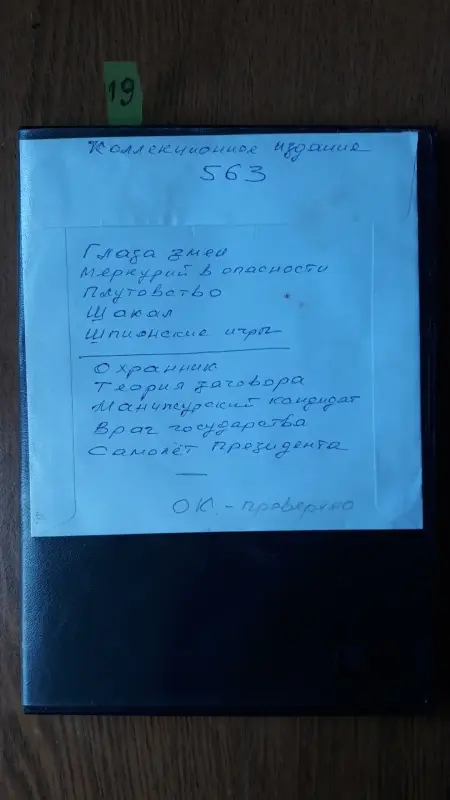 19
Коллекционное издание
563
Глаза змеи
Меркурий в опасности
Плутовство
Шакал
Шпионские игры
Охранник
Теория заговора
Манчжурский кандидат
Враг государства
Самолёт Президента
ОК. - проверено